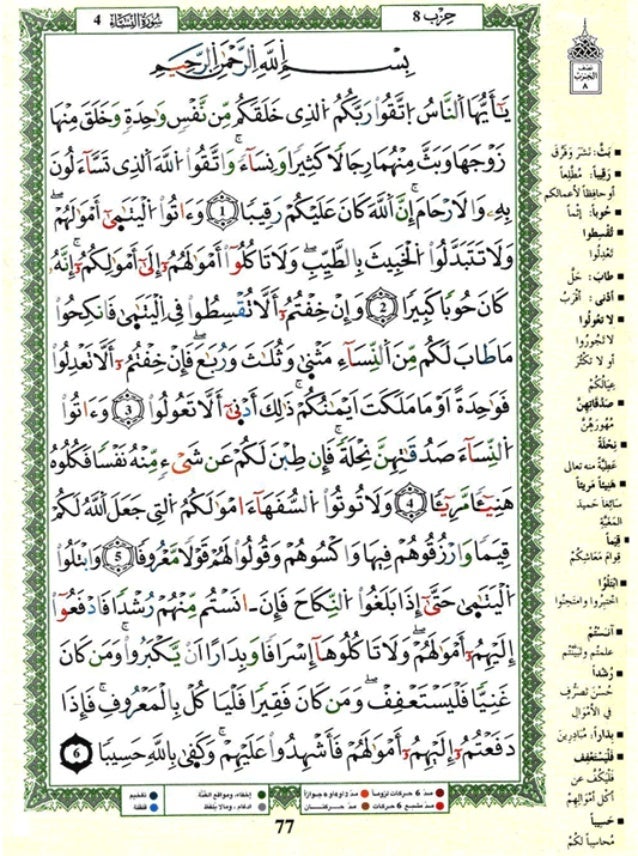 سُورَةُ النِّسَاءِ 4
حِزْب 8
نصف
الحزب
٨
بِسْمِ اِ۬للَّهِ اِ۬لرَّحْمَٰنِ اِ۬لرَّحِيمِ
يَٰٓأَيُّهَا اَ۬لنَّاسُ اُ۪تَّقُواْ رَبَّكُمُ اُ۬لذِے خَلَقَكُم مِّن نَّفْسٖ وَٰحِدَةٖ وَخَلَقَ مِنْهَا
زَوْجَهَا وَبَثَّ مِنْهُمَا رِجَالاٗ كَثِيراٗ وَنِسَآءٗۖ وَاتَّقُواْ اُ۬للَّهَ اَ۬لذِے تَسَّآءَلُونَ
بِهِۦ وَالَارْحَامَۖ إِنَّ اَ۬للَّهَ كَانَ عَلَيْكُمْ رَقِيباٗ 1 وَءَاتُواْ اُ۬لْيَتَٰمَىٰٓ أَمْوَٰلَهُمْۖ
وَلَا تَتَبَدَّلُواْ اُ۬لْخَبِيثَ بِالطَّيِّبِۖ وَلَا تَاكُلُوٓاْ أَمْوَٰلَهُمُۥٓ إِلَىٰٓ أَمْوَٰلِكُمُۥٓۖ إِنَّهُۥ
كَانَ حُوباٗ كَبِيراٗ 2 وَإِنْ خِفْتُمُۥٓ أَلَّا تُقْسِطُواْ فِے اِ۬لْيَتَٰمَىٰ فَانكِحُواْ
مَا طَابَ لَكُم مِّنَ اَ۬لنِّسَآءِ مَثْنَىٰ وَثُلَٰثَ وَرُبَٰعَۖ فَإِنْ خِفْتُمُۥٓ أَلَّا تَعْدِلُواْ
فَوَٰحِدَةً اَوْ مَا مَلَكَتَ اَيْمَٰنُكُمْۖ ذَٰلِكَ أَدْنَىٰٓ أَلَّا تَعُولُواْ 3 وَءَاتُواْ
اُ۬لنِّسَآءَ صَدُقَٰتِهِنَّ نِحْلَةٗۖ فَإِن طِبْنَ لَكُمْ عَن شَےْءٖ مِّنْهُ نَفْساٗ فَكُلُوهُ
هَنِيٓـٔاٗ مَّرِيٓـٔاٗ 4 وَلَا تُوتُواْ اُ۬لسُّفَهَآءَ امْوَٰلَكُمُ اُ۬لتِے جَعَلَ اَ۬للَّهُ لَكُمْ
قِيَماٗ وَارْزُقُوهُمْ فِيهَا وَاكْسُوهُمْ وَقُولُواْ لَهُمْ قَوْلاٗ مَّعْرُوفاٗ 5 وَابْتَلُواْ
اُ۬لْيَتَٰمَىٰ حَتَّىٰٓ إِذَا بَلَغُواْ اُ۬لنِّكَاحَ فَإِنَ اٰنَسْتُم مِّنْهُمْ رُشْداٗ فَادْفَعُوٓاْ
إِلَيْهِمُۥٓ أَمْوَٰلَهُمْۖ وَلَا تَاكُلُوهَآ إِسْرَافاٗ وَبِدَاراً اَنْ يَّكْبَرُواْۖ وَمَن كَانَ
غَنِيّاٗ فَلْيَسْتَعْفِفْۖ وَمَن كَانَ فَقِيراٗ فَلْيَاكُلْ بِالْمَعْرُوفِۖ فَإِذَا
دَفَعْتُمُۥٓ إِلَيْهِمُۥٓ أَمْوَٰلَهُمْ فَأَشْهِدُواْ عَلَيْهِمْۖ وَكَفَىٰ بِاللَّهِ حَسِيباٗ 6
■ بَثَّ: نَشَرَ وَفَرَّقَ
■ رَقِيباً: مُطَّلِعاً
أو حافِظاً لأعمالكم
■ حُوباً: إثْماً
■ تُقْسِطُوا
تَعْدِلُوا
■ طابَ: حَلَّ
■ أدْنى: أقْرَبُ
■ لا تعُولُوا
لا تَجُورُوا
أو لا تكْثُرَ
عِيالُكُمْ
■ صَدُقاتِهِنَّ
مُهُورَهُنَّ
■ نِحْلَةً
عَطِيَّةً منه تعالى
■ هَنِيئاً مَرِيئاً
سائِغاً حَميدَ
المَغَبَّةِ
■ قِيَماً
قِوامَ مَعاشِكُمْ
■ ابْتَلُوا
اخْتَبِرُوا وامتَحِنُوا
■ آنَسْتُمْ
علمتُم وتَبَيَّنْتُم
■ رُشْداً
حُسْنَ تَصَرُّفٍ
في الأمْوَالِ
■ بِداراً: مُبادِرِينَ
■ فَلْيَسْتَعْفِفْ
فَلْيَكُفَّ عن
أكْل أمْوَالِهِمْ
■ حَسِيباً
مُحاسِباً لكُمْ
● مدّ 6 حركات لزوماً ● مدّ 2 أو 4 أو 6 جوازاً ● إخفاء، ومواقع الغُنَّة ● تفخيم
● مدّ مشبع 6 حركات ● مدّ حركتــان ● ادغام، ومالا يُلفظ ● قلقلة
77